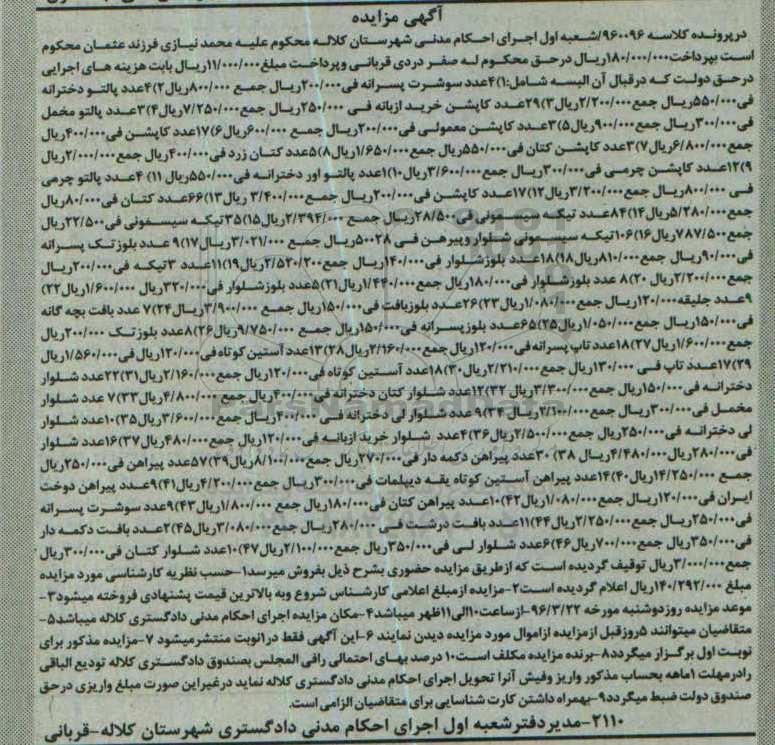 آگهی مزایده
درپرونده کلاسه ۹۶۰۰۹۶/شعبه اول اجرای احکام مدنی شهرستان کلاله محکوم علیه محمد نیازی فرزند عثمان محکوم
است بپرداخت۱۸۰/۰۰۰/۰۰۰ریال درحق محکوم له صفر دردی قربانی وپرداخت مبلغ۱۱/۰۰۰/۰۰۰ریال بابت هزینه های اجرایی
درحق دولت که درقبال آن البسه شامل:۱)۴عدد سوشرت پسرانه فی۲۰۰/۰۰۰ریال جمع ۸۰۰/۰۰۰ریال۲)۴عدد پالتو دخترانه
فی۵۵۰/۰۰۰ریال جمع۲/۲۰۰/۰۰۰ریال۳)۲۹عدد کاپشن خرید ازبانه فی ۲۵۰/۰۰۰ریال جمع۷/۲۵۰/۰۰۰ریال۴)۳عدد پالتو مخمل
فی۳۰۰/۰۰۰ریال جمع۹۰۰/۰۰۰ریال۵)۳عدد کاپشن معمولی فی۲۰۰/۰۰۰ریال جمع ۶۰۰/۰۰۰ریال۶)۱۷عدد کاپشن فی۴۰۰/۰۰۰ریال
جمع۶/۸۰۰/۰۰۰ریال۷)۳عدد کاپشن کتان فی۵۵۰/۰۰۰ریال جمع۱/۶۵۰/۰۰۰ریال۸)۵عدد کتان زرد فی۴۰۰/۰۰۰ریال جمع۲/۰۰۰/۰۰۰ریال
۹)۱۲عدد کاپشن چرمی فی۳۰۰/۰۰۰ریال جمع۳/۶۰۰/۰۰۰ریال۱۰)۱عدد پالتو اور دخترانه فی۵۵۰/۰۰۰ریال ۱۱) ۴عدد پالتو چرمی
فی ۸۰۰/۰۰۰ریال جمع۳/۲۰۰/۰۰۰ریال۱۲)۱۷عدد کاپشن فی۲۰۰/۰۰۰ریال جمع۳/۴۰۰/۰۰۰ ریال۱۳)۶۶عدد کتان فی۸۰/۰۰۰ریال
جمع۵/۲۸۰/۰۰۰ریال۱۴)۸۴عدد تیکه سیسمونی فی۲۸/۵۰۰ریال جمع ۲/۳۹۴/۰۰۰ریال۱۵)۳۵تیکه سیسمونی فی۲۲/۵۰۰ریال
جمع۷۸۷/۵۰۰ریال۱۶)۱۰۶تیکه سیسمونی شلوار وپیرهن فی ۲۸۵۰۰ریال جمع ۳/۰۲۱/۰۰۰ریال۱۷)۹ عدد بلوز تک پسرانه
فی۹۰/۰۰۰ریال جمع۸۱۰/۰۰۰ریال۱۸)۱۸عدد بلوزشلوار فی۱۴۰/۰۰۰ریال جمع۲/۵۲۰/۲۰۰ریال۱۹)۱۱عدد ۳تیکه فی۲۰۰/۰۰۰ریال
جمع۲/۲۰۰/۰۰۰ریال ۲۰)۸ عدد بلوزشلوار فی۱۸۰/۰۰۰ریال جمع۱/۴۴۰/۰۰۰ریال۲۱)۵عدد بلوزشلوار فی۳۲۰/۰۰۰ریال ۱/۶۰۰/۰۰۰ریال۲۲)
۹عدد جلیقه۱۲۰/۰۰۰ریال جمع۱/۰۸۰/۰۰۰ریال۲۳)۲۶عدد بلوزبافت فی۱۵۰/۰۰۰ریال جمع ۳/۹۰۰/۰۰۰ریال۲۴)۷ عدد بافت بچه گانه
فی۱۵۰/۰۰۰ریال جمع۱/۰۵۰/۰۰۰ریال۲۵)۶۵عدد بلوزپسرانه فی۱۵۰/۰۰۰ریال جمع ۹/۷۵۰/۰۰۰ریال۲۶)۸عدد بلوزتک ۲۰۰/۰۰۰ریال
جمع۱/۶۰۰/۰۰۰ریال۲۷)۱۸عدد تاپ پسرانه فی۱۲۰/۰۰۰ریال جمع۲/۱۶۰/۰۰۰ریال۲۸)۱۳عدد آستین کوتاه فی۱۲۰/۰۰۰ریال فی۱/۵۶۰/۰۰۰ریال
۲۹)۱۷عدد تاپ فی ۱۳۰/۰۰۰ریال جمع۲/۲۱۰/۰۰۰ریال۳۰)۱۸عدد آستین کوتاه فی۱۲۰/۰۰۰ریال جمع۲/۱۶۰/۰۰۰ریال۳۱)۲۲عدد شلوار
دخترانه فی۱۵۰/۰۰۰ریال جمع۳/۳۰۰/۰۰۰ریال ۳۲)۱۲عدد شلوار کتان دخترانه فی۴۰۰/۰۰۰ریال جمع۴/۸۰۰/۰۰۰ریال۳۳)۷ عدد شلوار
مخمل فی۳۰۰/۰۰۰ریال جمع۲/۱۰۰/۰۰۰ریال ۳۴)۹عدد شلوارلی دخترانه فی ۴۰۰/۰۰۰ریال جمع۳/۶۰۰/۰۰۰ریال۳۵)۱۰عدد شلوار
لی دخترانه فی۲۵۰/۰۰۰ریال جمع۲/۵۰۰/۰۰۰ریال۳۶)۴عدد شلوار خرید ازبانه فی۱۲۰/۰۰۰ریال جمع۴۸۰/۰۰۰ریال۳۷)۱۶عدد شلوار
فی۲۸۰/۰۰۰ریال۴/۴۸۰/۰۰۰ریال ۳۸) ۳۰عدد پیراهن دکمه دار فی۲۷۰/۰۰۰ریال جمع۸/۱۰۰/۰۰۰ریال۳۹)۵۷عدد پیراهن فی۲۵۰/۰۰۰ریال
جمع ۱۴/۲۵۰/۰۰۰ریال۴۰)۱۴عدد پیراهن آستین کوتاه یقه دیپلمات فی۳۰۰/۰۰۰ریال جمع۴/۲۰۰/۰۰۰ریال۴۱)۹عدد پیراهن دوخت
ایران فی۱۲۰/۰۰۰ریال جمع۱/۰۸۰/۰۰۰ریال۴۲)۱۰عدد پیراهن کتان فی۱۸۰/۰۰۰ریال جمع ۱/۸۰۰/۰۰۰ریال۴۳)۹عدد سوشرت پسرانه
فی۲۵۰/۰۰۰ریال جمع۲/۲۵۰/۰۰۰ریال۴۴)۱۱عدد بافت درشت فی ۲۸۰/۰۰۰ریال جمع۳/۰۸۰/۰۰۰ریال۴۵)۲عدد بافت دکمه دار
فی۳۵۰/۰۰۰ریال جمع۷۰۰/۰۰۰ریال۴۶)۶عدد شلوار لی فی۳۵۰/۰۰۰ریال جمع۲/۱۰۰/۰۰۰ریال۴۷)۱۰عدد شلوار کتان فی۳۰۰/۰۰۰ریال
جمع۳/۰۰۰/۰۰۰ریال توقیف گردیده است که ازطریق مزایده حضوری بشرح ذیل بفروش میرسد۱-حسب نظریه کارشناسی مورد مزایده
مبلغ ۱۴۰/۲۹۲/۰۰۰ریال اعلام گردیده است۲-مزایده ازمبلغ اعلامی کارشناس شروع وبه بالاترین قیمت پشنهادی فروخته میشود۳-
موعد مزایده روزدوشنبه مورخه ۹۶/۳/۲۲-ازساعت۱۰الی۱۱ظهر میباشد۴-مکان مزایده اجرای احکام مدنی دادگستری کلاله میباشد۵-
متقاضیان میتوانند ۵روزقبل ازمزایده ازاموال مورد مزایده دیدن نمایند ۶-این آگهی فقط در۱نوبت منتشرمیشود ۷-مزایده مذکور برای
نوبت اول برگزار میگردد۸-برنده مزایده مکلف است۱۰ درصد بهای احتمالی رافی المجلس بصندوق دادگستری کلاله تودیع الباقی
رادرمهلت ۱ماهه بحساب مذکور واریز وفیش آنرا تحویل اجرای احکام مدنی دادگستری کلاله نماید درغیراین صورت مبلغ واریزی درحق
صندوق دولت ضبط میگردد۹-بهمراه داشتن کارت شناسایی برای متقاضیان الزامی است.
۲۱۱۰-مدیردفترشعبه اول اجرای احکام مدنی دادگستری شهرستان کلاله-قربانی